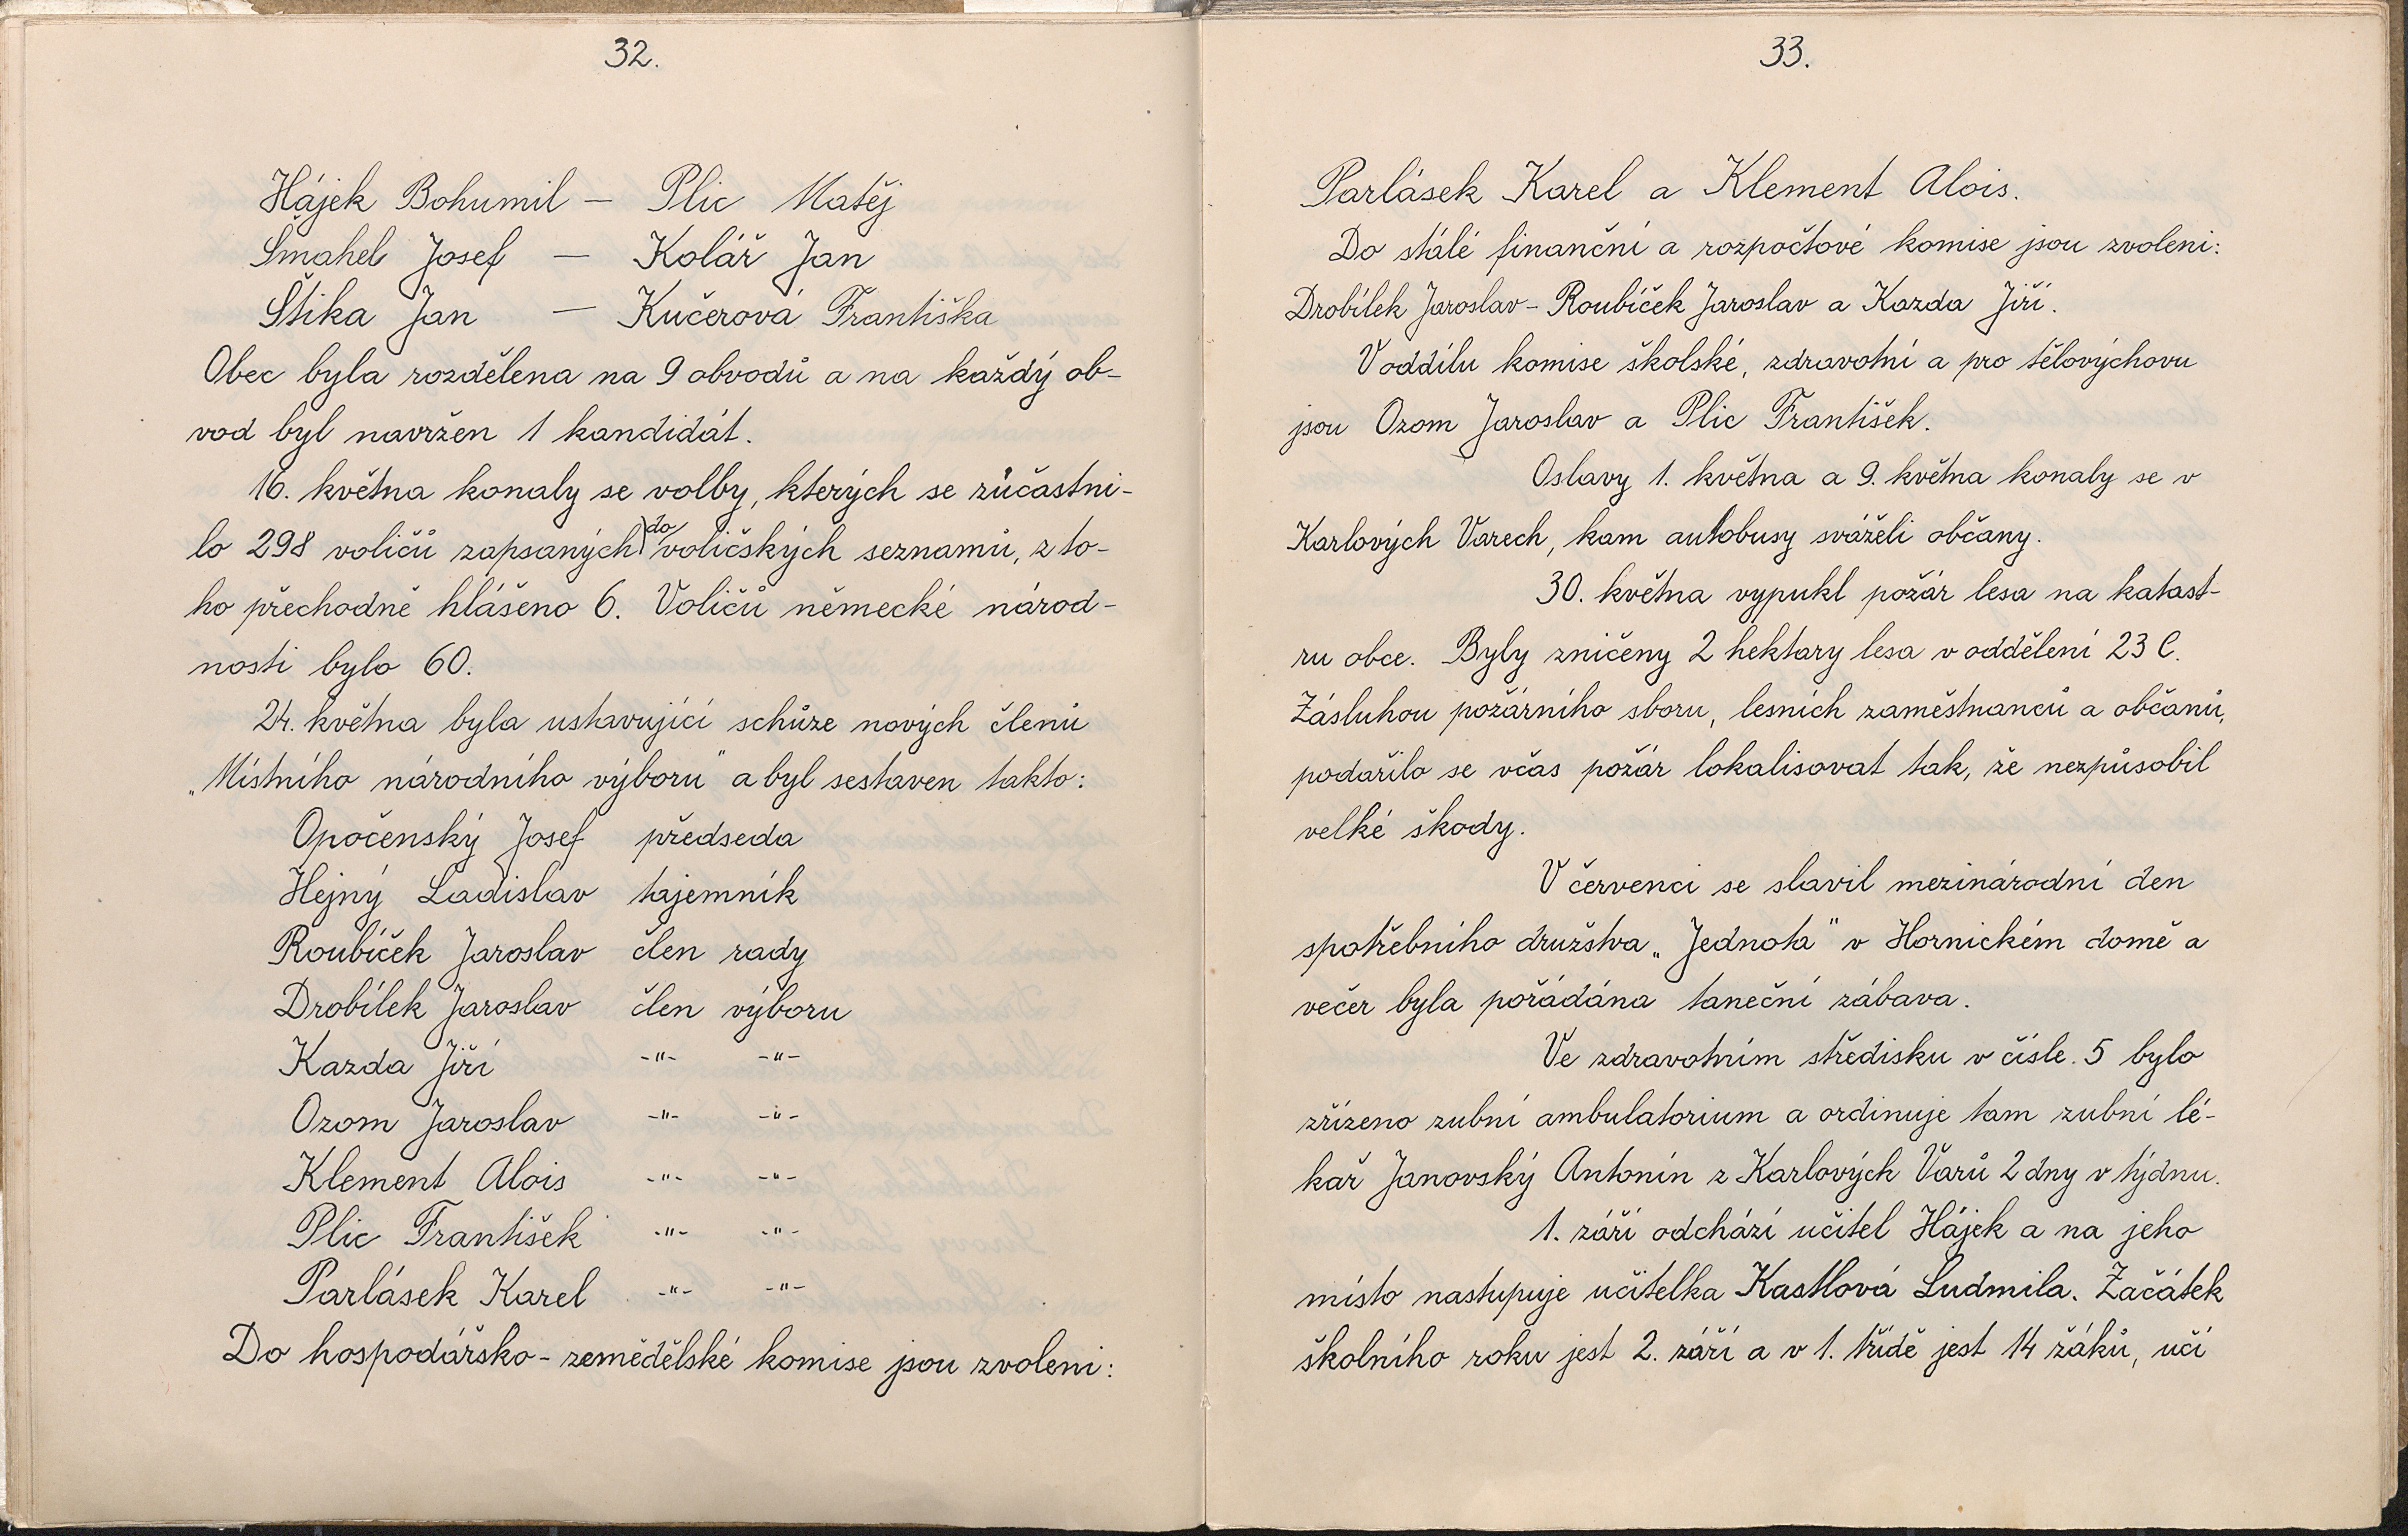 32.
Hájek Bohumil – Plic Matěj
Šmahel Josef – Kolář Jan
Štika Jan – Kučerová Františka
Obec byla rozdělena na 9 obvodů a na každý ob-
vod byl navržen 1 kandidát.
16. května konaly se volby, kterých se zůčastni-
lo 298 voličů zapsaných do voličských seznamů, z to-
ho přechodně hlášeno 6. Voličů německé národ-
nosti bylo 60.
24. května byla ustavující schůze nových členů
„Místního národního výboru" a byl sestaven takto:
Opočenský Josef předseda
Hejný Ladislav tajemník
Roubíček Jaroslav člen rady
Drobílek Jaroslav člen výboru
Kazda Jiří -"- -"-
Ozom Jaroslav -"- -"-
Klement Alois -"- -"-
Plic František -"- -"-
Parlásek Karel -"- -"-
Do hospodářsko-zemědělské komise jsou zvoleni:
33.
Parlásek Karel a Klement Alois.
Do stálé finanční a rozpočtové komise jsou zvoleni:
Drobílek Jaroslav - Roubíček Jaroslav a Kazda Jiří.
V oddílu komise školské, zdravotní a pro tělovýchovu
jsou Ozom Jaroslav a Plic František.
Oslavy 1. května a 9. května konaly se v
Karlových Varech, kam autobusy sváželi občany.
30. května vypukl požár lesa na katast-
ru obce. Byly zničeny 2 hektary lesa v oddělení 23 C.
Zásluhou požárního sboru, lesních zaměstnanců a občanů,
podařilo se včas požár lokalisovat tak, že nezpůsobil
velké škody.
V červenci se slavil mezinárodní den
spotřebního družstva „Jednota" v Hornickém domě a
večer byla pořádána taneční zábava.
Ve zdravotním středisku v čísle. 5 bylo
zřízeno zubní ambulatorium a ordinuje tam zubní lé-
kař Janovský Antonín z Karlových Varů 2 dny v týdnu.
1. září odchází učitel Hájek a na jeho
místo nastupuje učitelka Kastlová Ludmila. Začátek
školního roku jest 2. září a v 1. třídě jest 14 žáků, učí